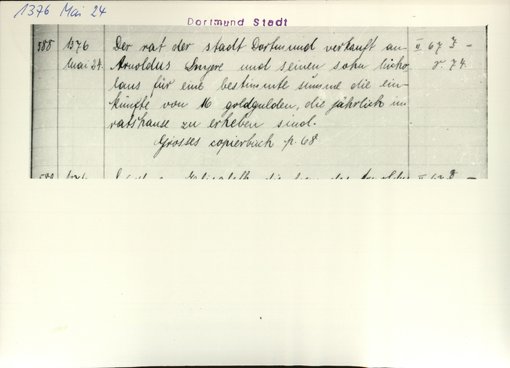 1376 Mai 24
Dortmund Stadt
588 1376 Der rat der stadt Dortmund verkauft an II. 67 J -
mai 24. Arnoldus und seinen sohn Nicho- v. 74.
laus für eine bestimmte summe die ein-
künfte von 16 goldgulden, die jährlich im
ratshause zu erheben sind.
Grosses copierbuch p. 68